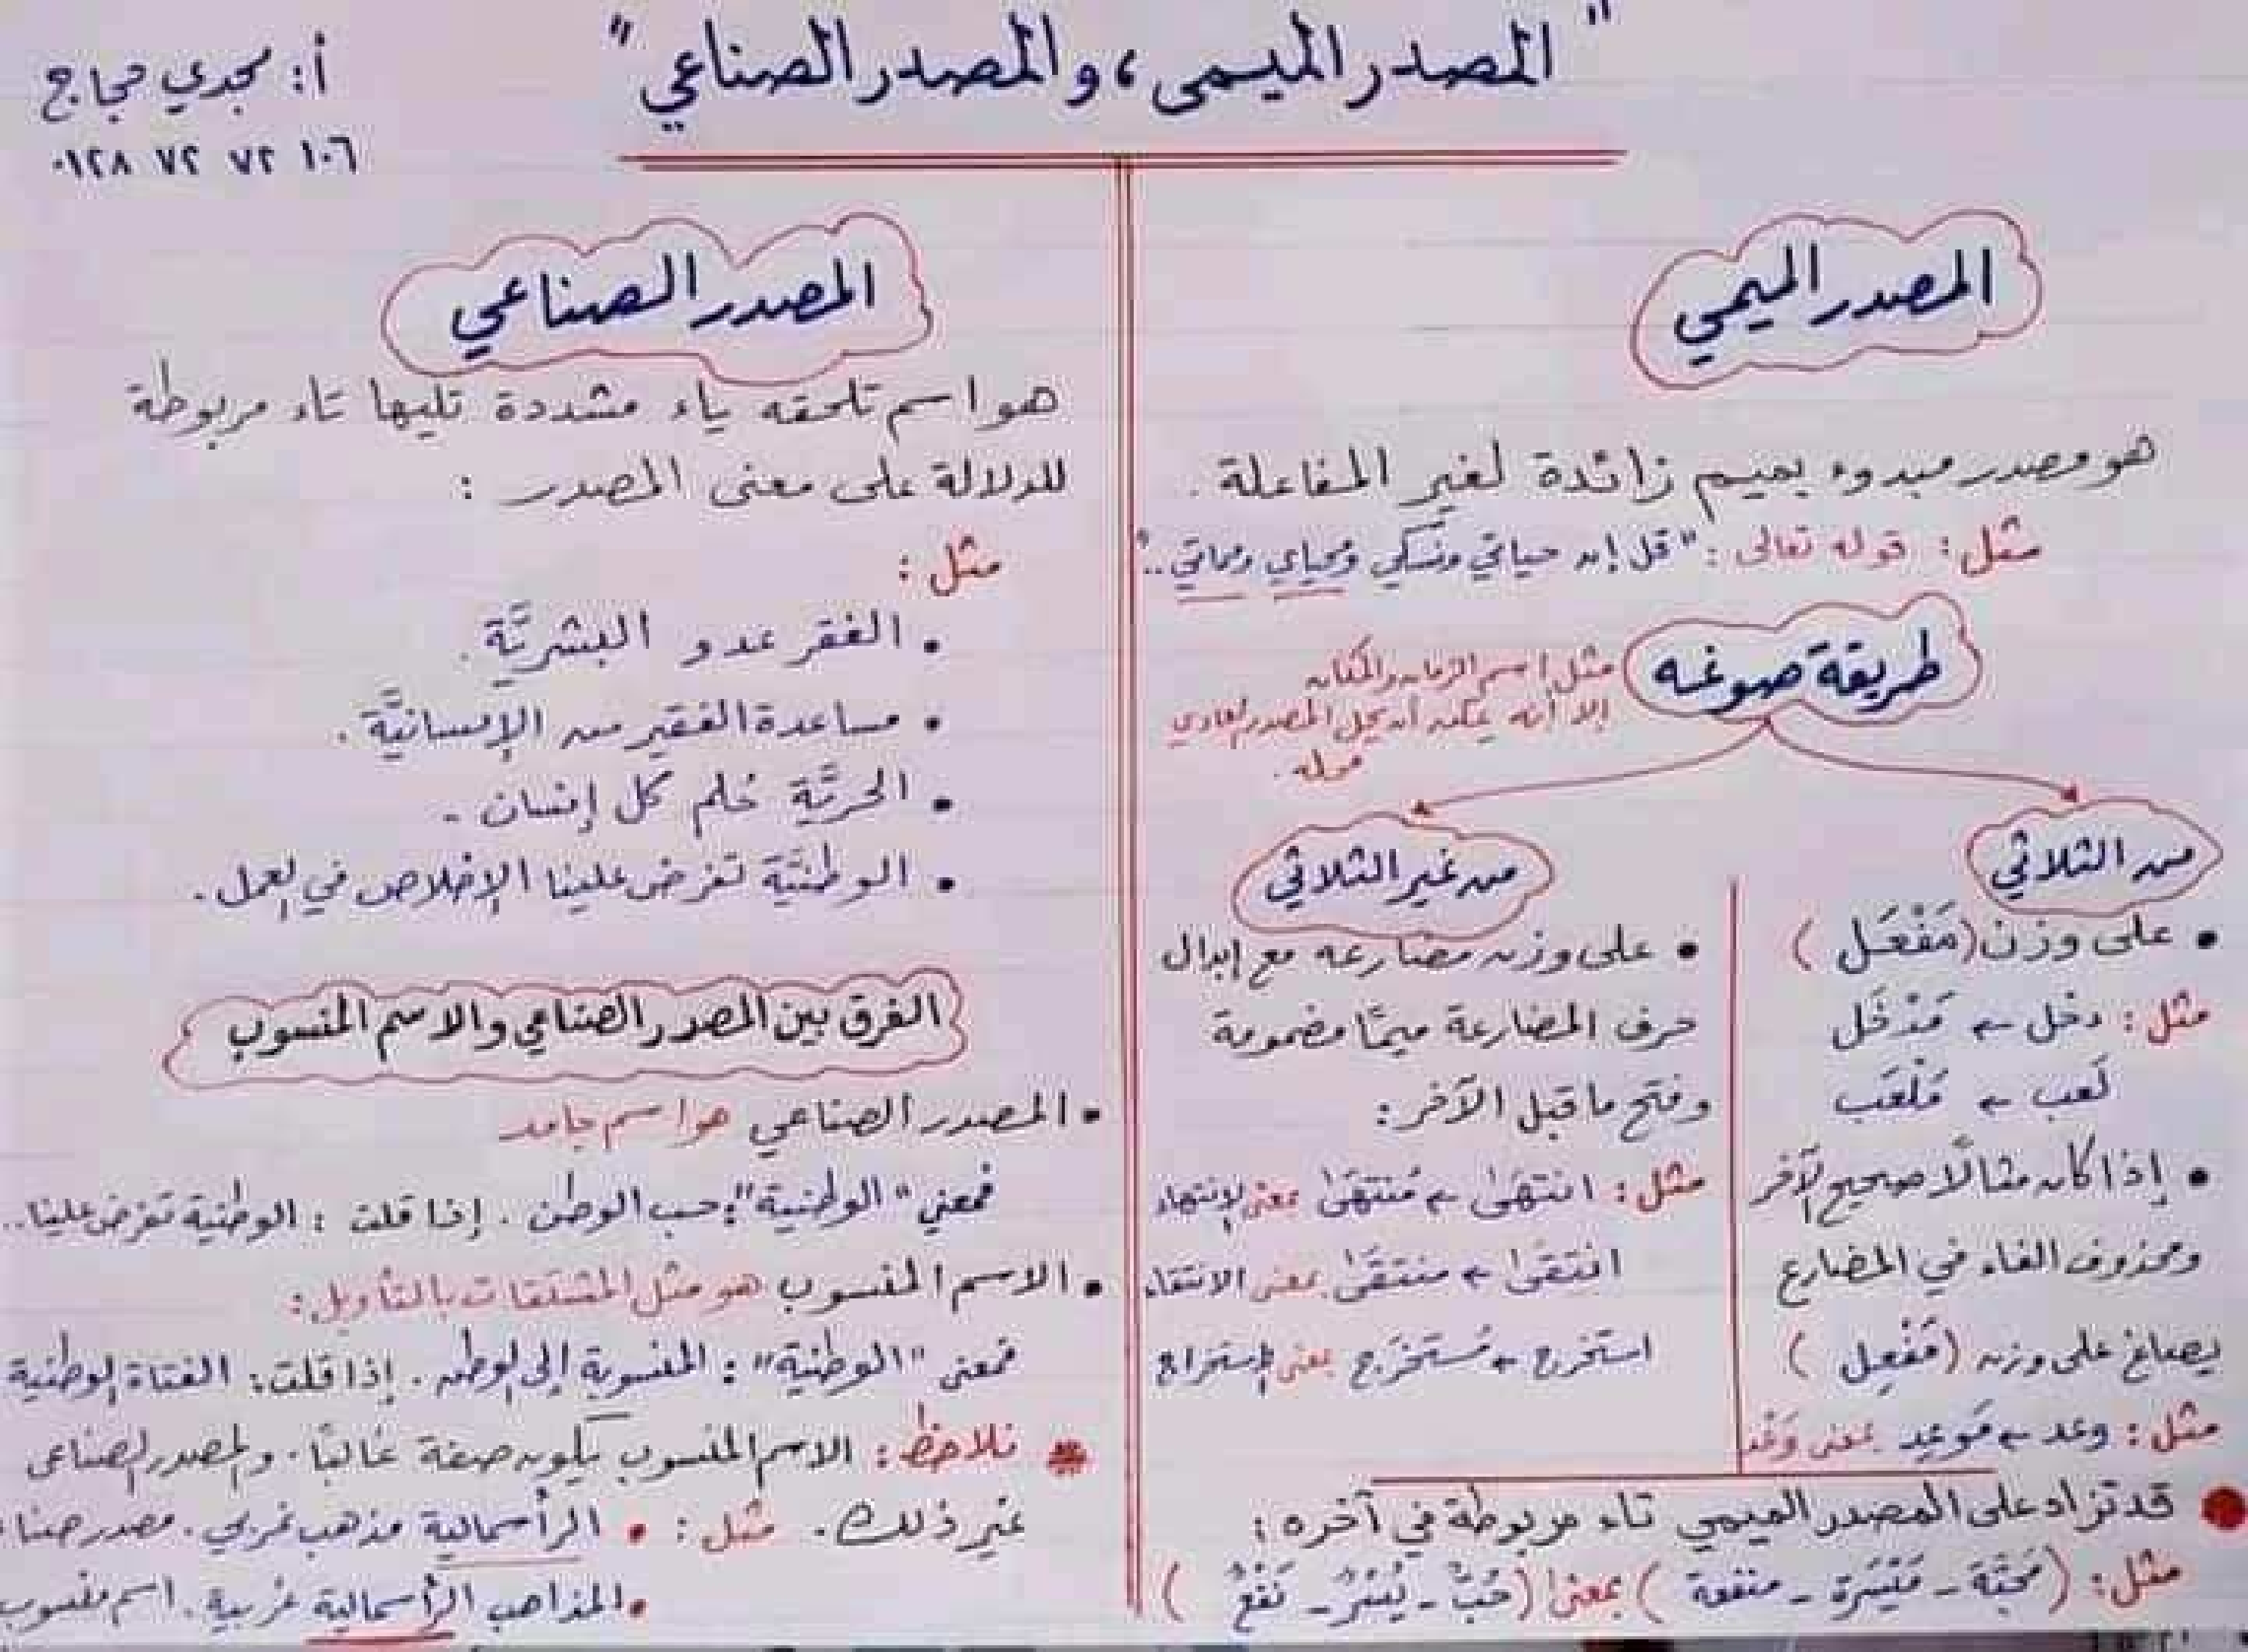 "المصدر الميمى، والمصدر الصناعي"
أ: مجدي حجاج
٠١٢٨ ٧٢ ٧٢ ١٠٦
المصدر الميمي
هو مصدر مبدوء بميم زائدة لغير المفاعلة ..
مثل: قوله تعالى: "قل إن حياتي ونسكي ومحياي ومماتي.."
طريقة صوغه
مثل اسم الزمان والمكان
إلا أنه يمكن أن يحل المصدر العادي
محله.
من الثلاثي
على وزن (مَفْعَل)
مثل: دخل ← مَدْخَل
لَعب ← مَلْعَب
إذا كان مثالًا صحيح الآخر
ومحذوف الفاء في المضارع
يصاغ على وزن (مَفْعِل)
مثل: وعد ← مَوعِد بمعنى وَعْد
من غير الثلاثي
على وزن مضارعه مع إبدال
حرف المضارعة ميمًا مضمومة
وفتح ما قبل الآخر:
مثل: انتهَى ← مُنتهَى بمعنى الإنتهاء
انتقَى ← منتقَى بمعنى الانتقاء
استخرج ← مُستخرَج بمعنى إستخراج
قد تزاد على المصدر الميمي تاء مربوطة في آخره:
مثل: (مَحبَّة - مَيْسَرة - منفعة) بمعنى (حُبٌّ - يُسْرٌ - نَفْعٌ)
المصدر الصناعي
هو اسم تلحقه ياء مشددة تليها تاء مربوطة
للدلالة على معنى المصدر:
مثل:
• الفقر عدو البشريَّة.
• مساعدة الفقير من الإنسانيَّة.
• الحريَّة حُلم كل إنسان.
• الوطنيَّة تفرض علينا الإخلاص في العمل.
الفرق بين المصدر الصناعي والاسم المنسوب
• المصدر الصناعي هو اسم جامد
فمعني "الوطنية": حب الوطن. إذا قلت: الوطنية تفرض علينا..
• الاسم المنسوب هو مثل المشتقات بالتأويل:
فمعنى "الوطنية": المنسوبة إلى الوطن. إذا قلت: الفتاة الوطنية
* نلاحظ: الاسم المنسوب يكون صفة غالبًا. والمصدر الصناعى
غير ذلك. مثل: • الرأسمالية مذهب غربي. مصدر صنا
• المذاهب الرأسمالية غربية. اسم منسوب